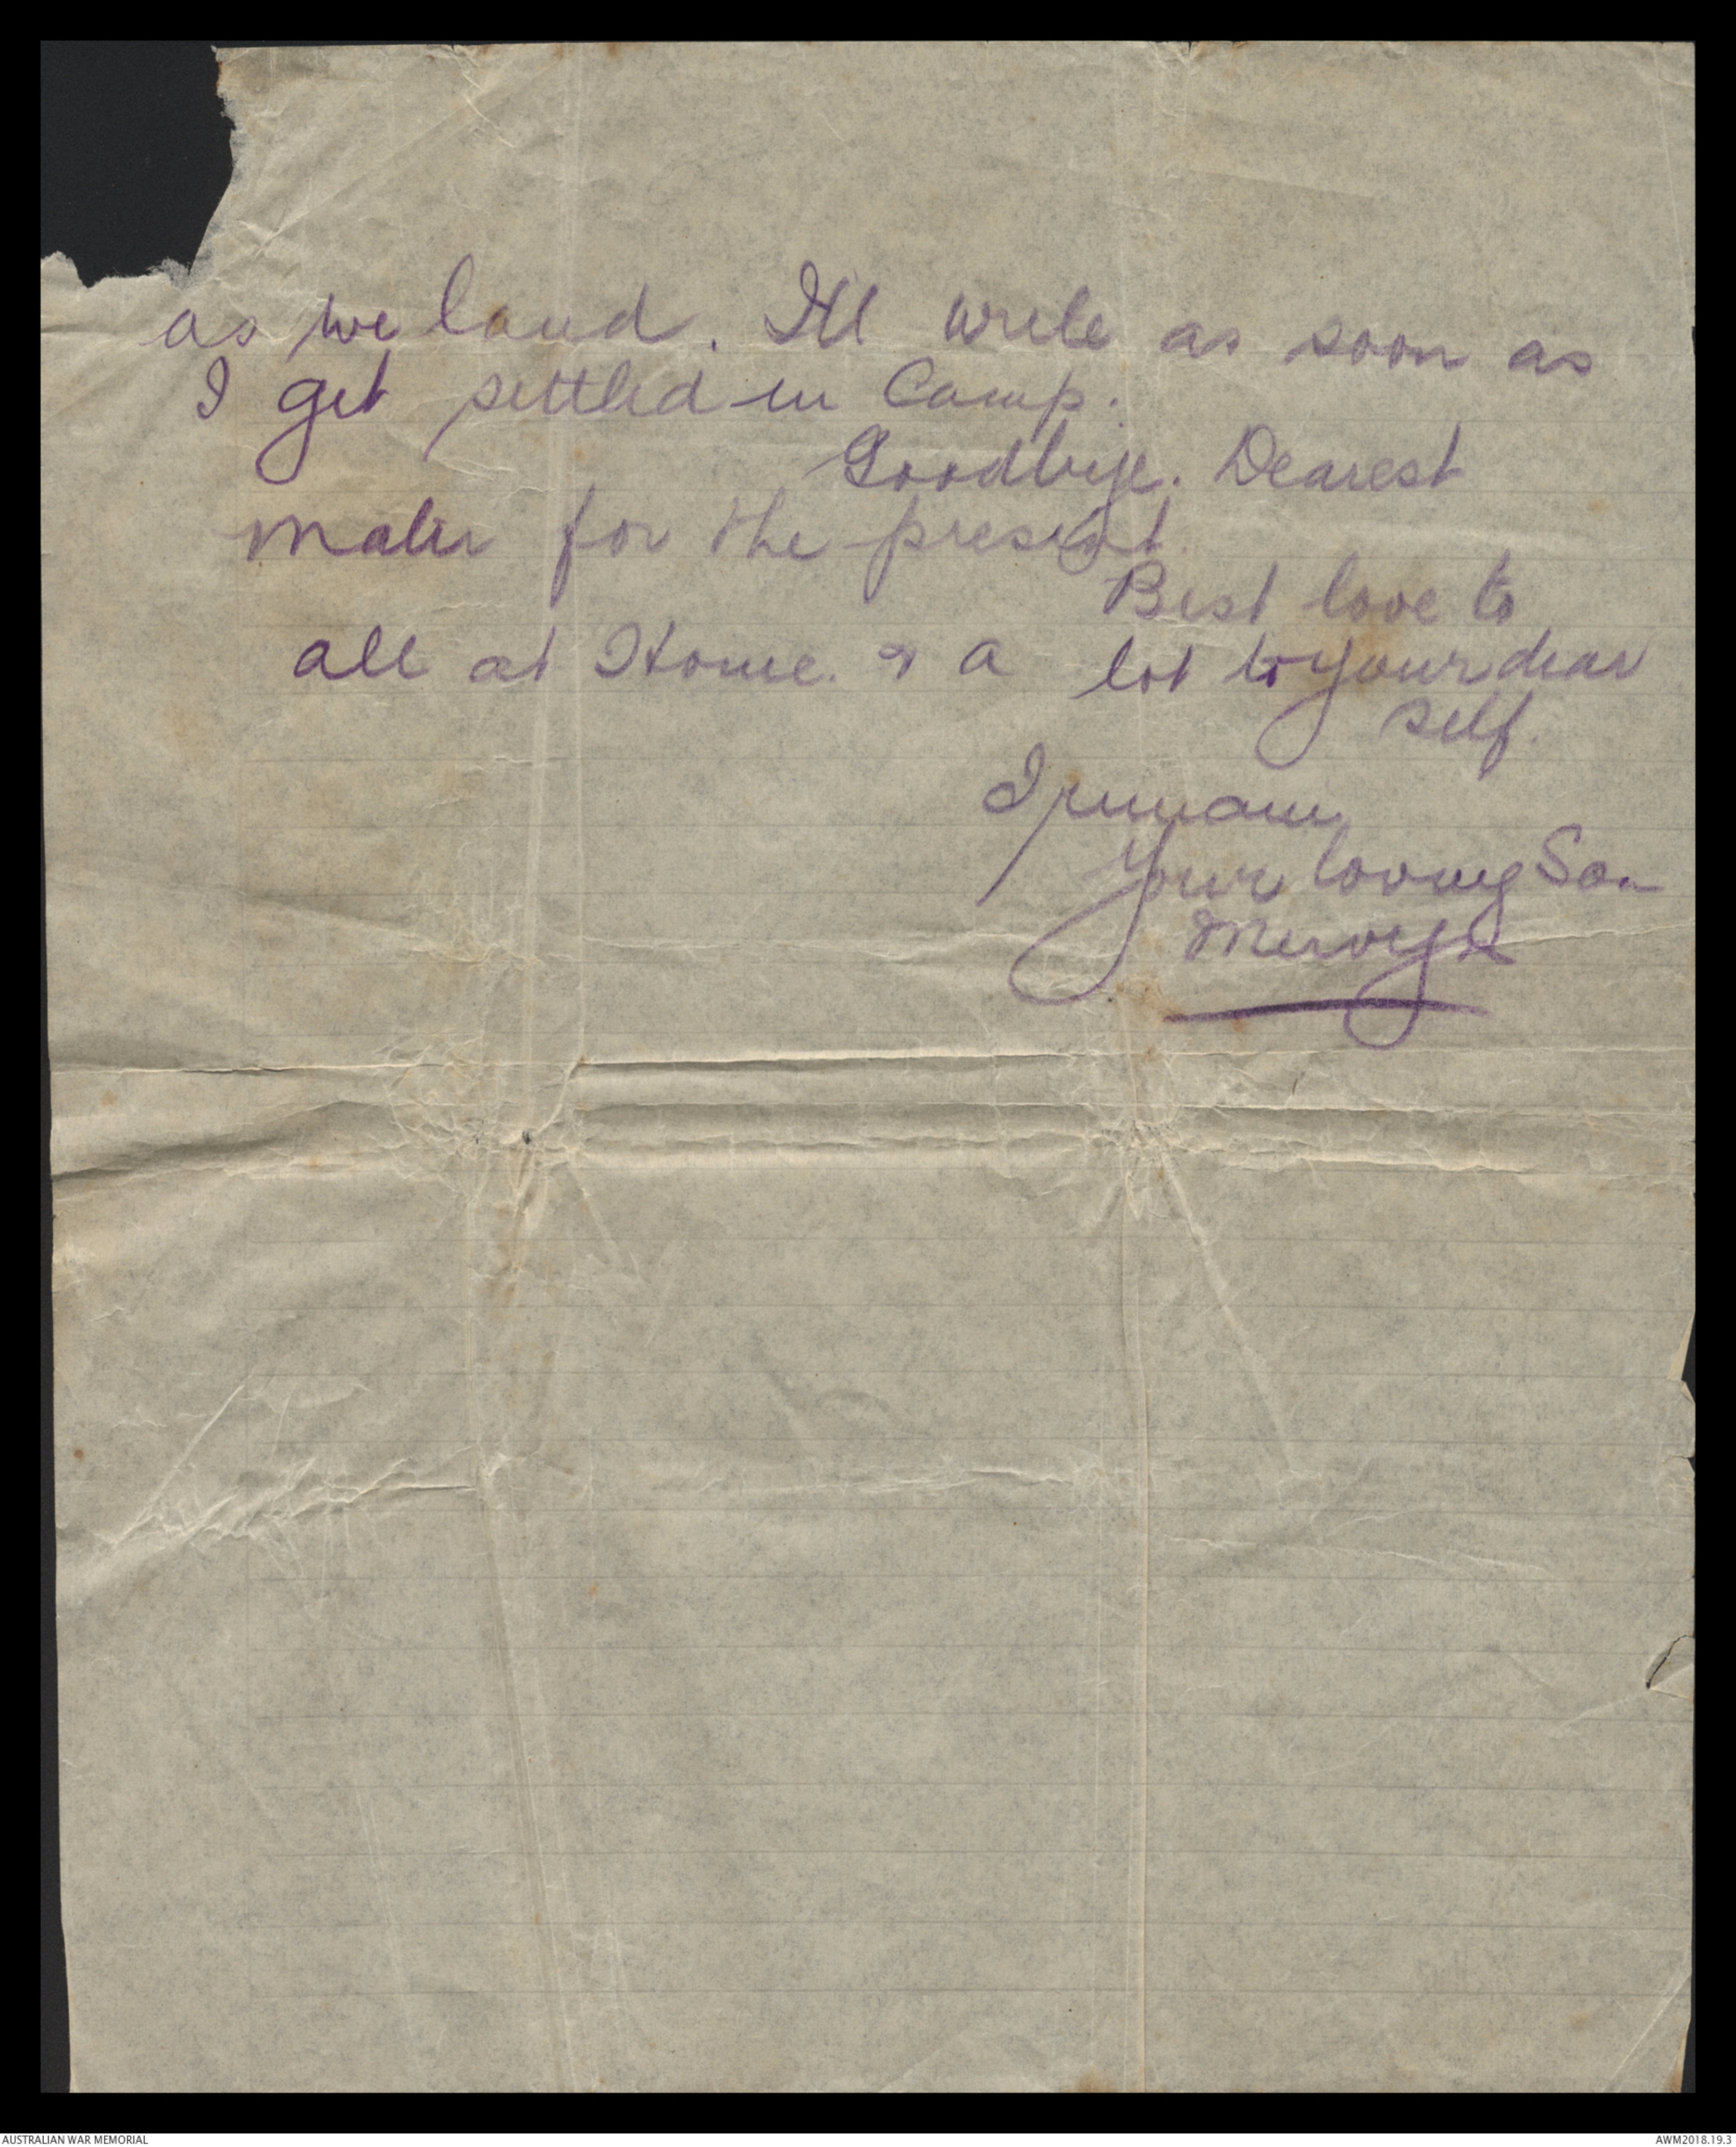 as we land. I'll write as soon as
I get settled in Camp.
Goodbye. Dearest
Mater for the present
Best love to
all at Home. & a lot to your dear
self.
I remain
Your loving Son
Mervyn
AUSTRALIAN WAR MEMORIAL
AWM2018.19.3